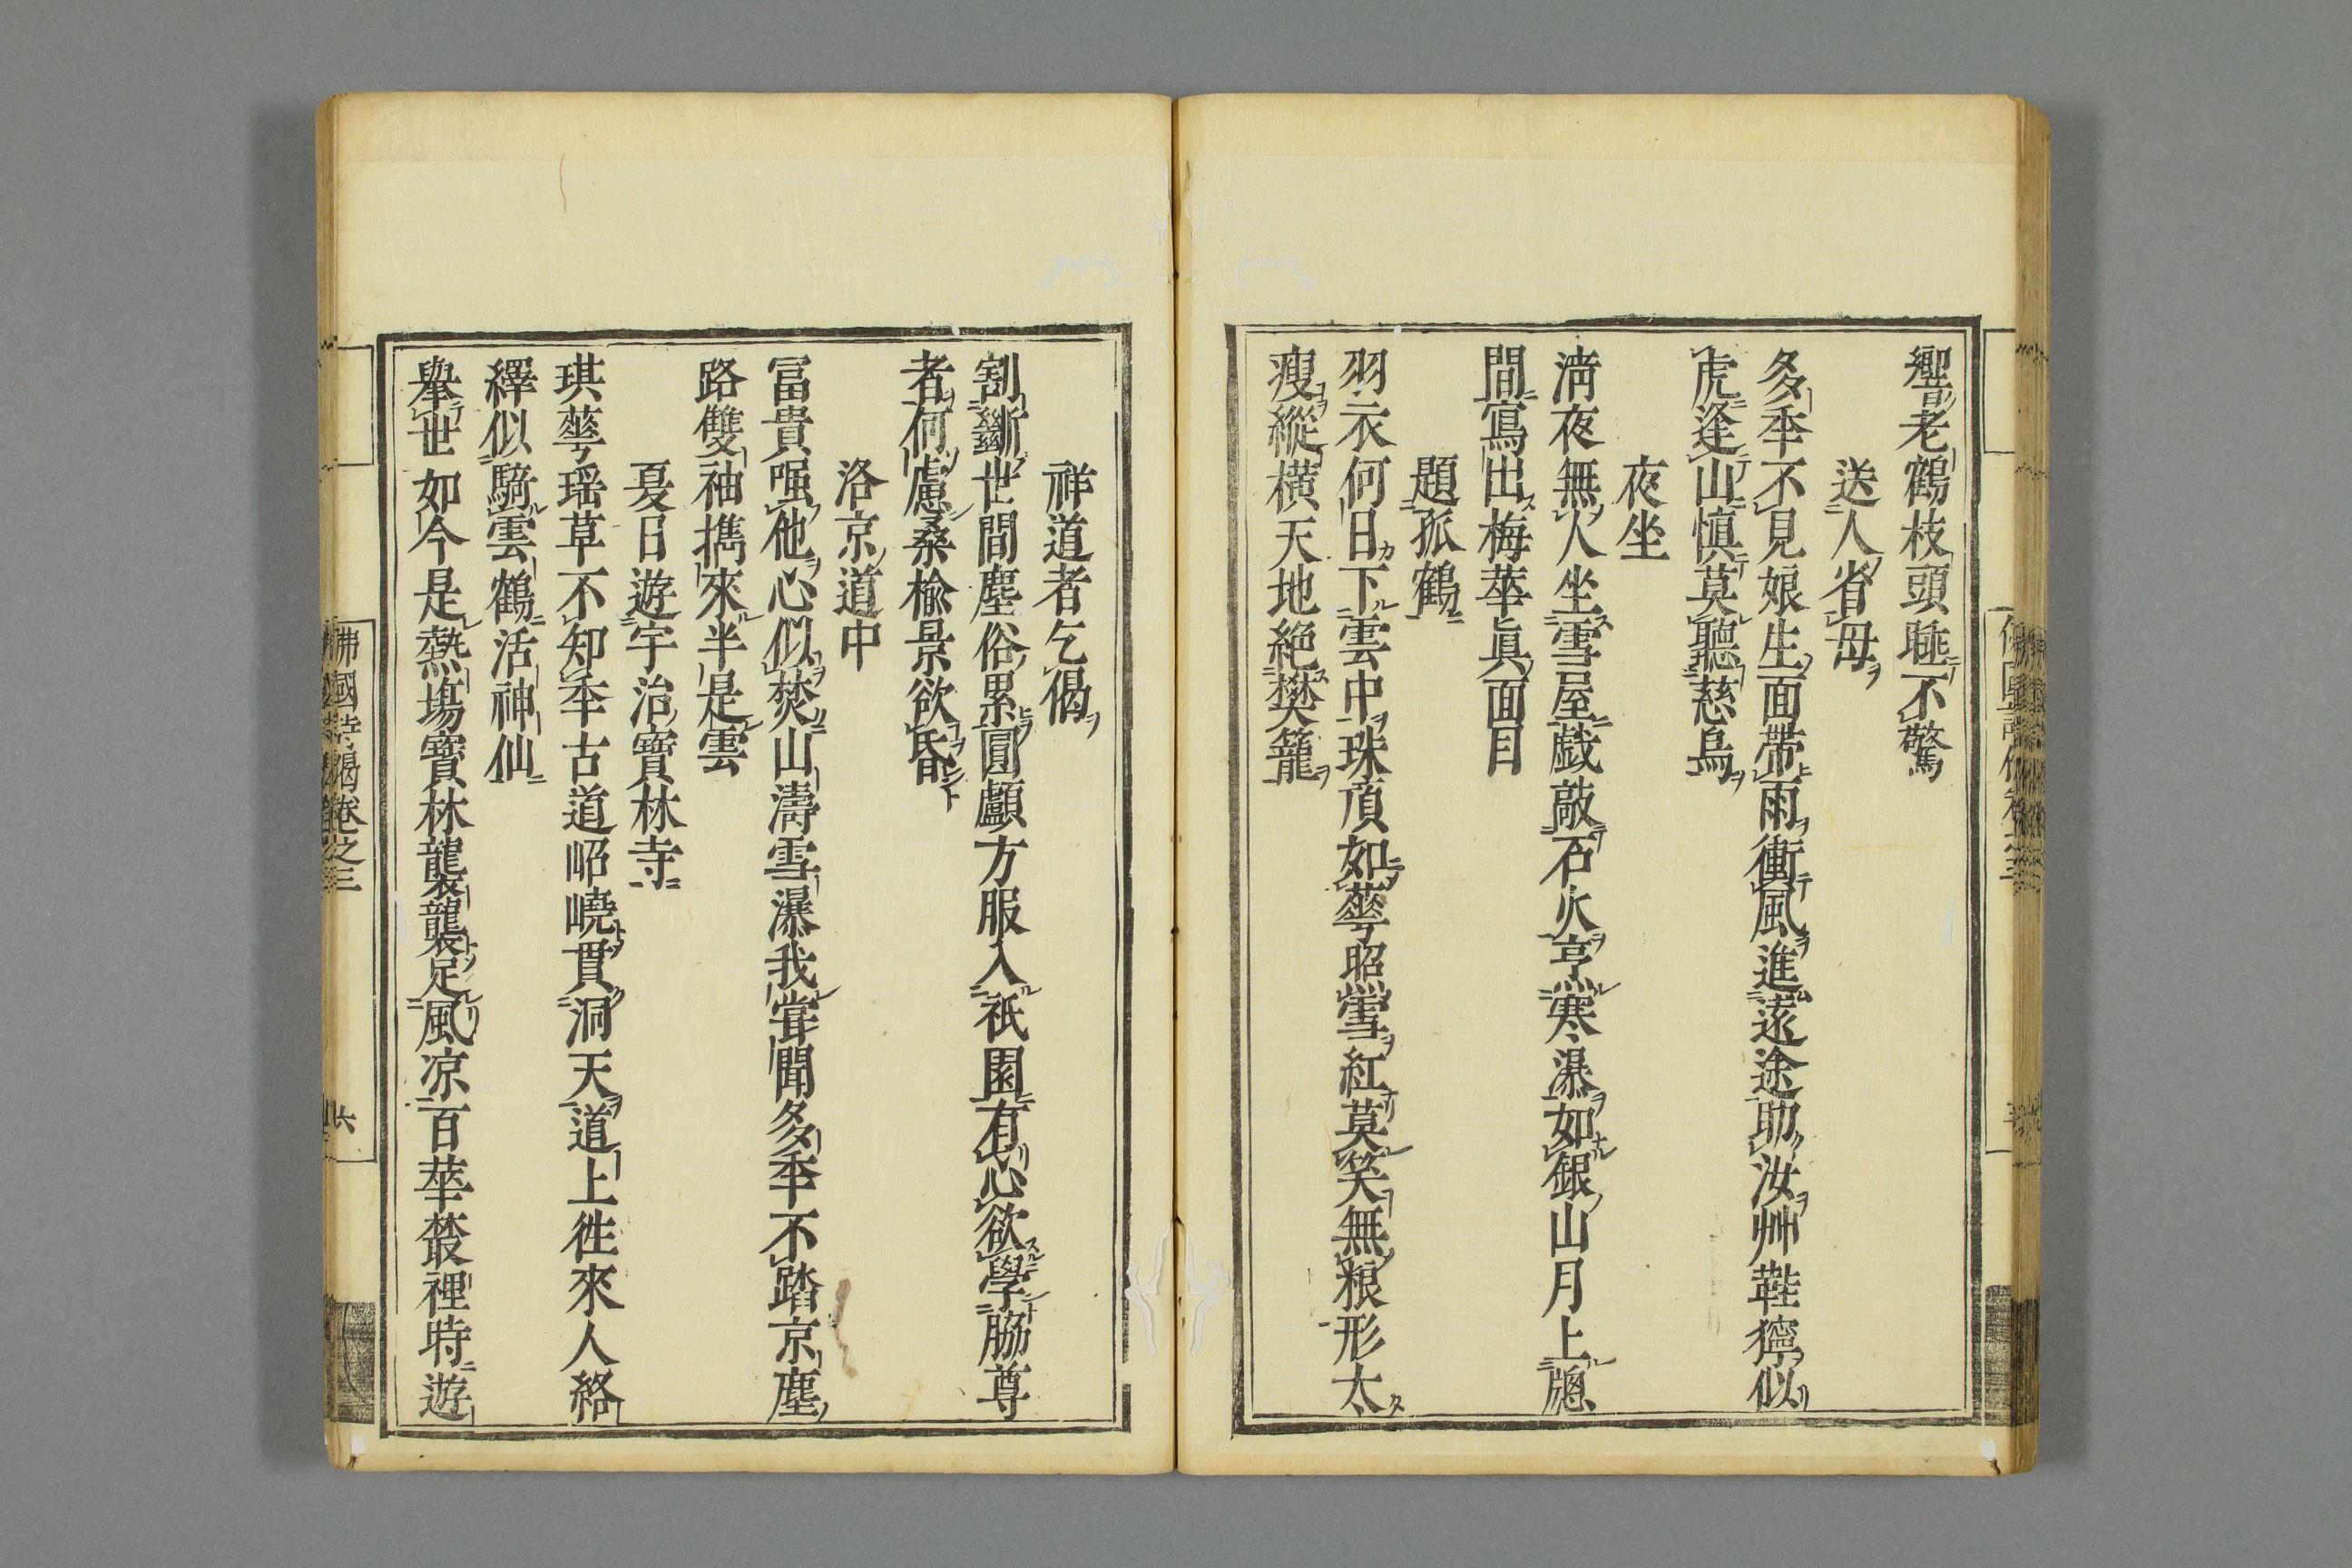 響老鶴枝頭睡不驚
送人省母
多季不見娘生面帶雨衝風進遠途助汝艸鞋獰似
虎逢山慎莫聽慈烏
夜坐
淸夜無人坐雪屋戯敲石火烹寒瀑如銀山月上牕
間寫出梅華眞面目
題孤鶴
羽衣何日下雲中珠頂如蕚照雪紅莫笑無粮形太
瘦縱橫天地絶樊籠
祥道者乞偈
割斷世間塵俗累圓顱方服入祇園有心欲學脇尊
者何慮桑楡景欲昏
洛京道中
冨貴嗤他心似焚山濤雪瀑我甞聞多季不踏京塵
路雙袖擕來半是雲
夏日遊宇治寶林寺
琪蕚瑶草不知季古道岹嶢貫洞天道上徃來人絡
繹似騎雲鶴活神仙
擧世如今是熱塲寶林襲襲足風凉百華叢裡時遊
佛國詩偈卷之三
六